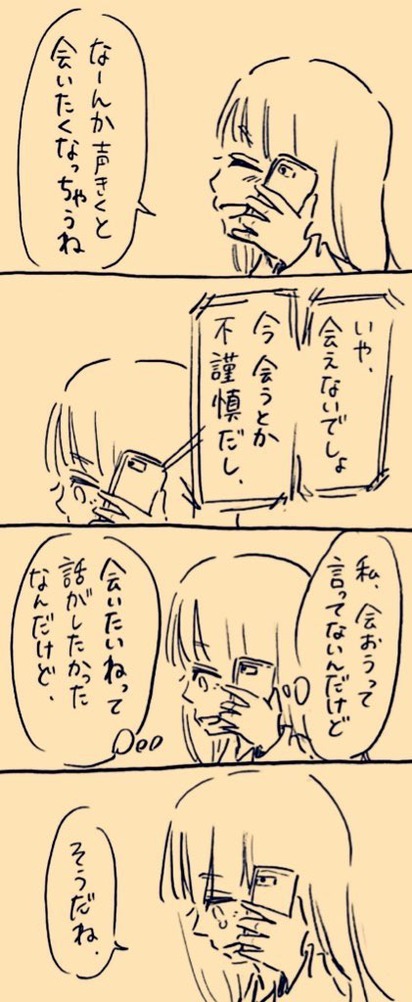 なーんか声きくと
会いたくなっちゃうね
いや、
会えないでしょ
今会うとか
不謹慎だし、
私、会おうって
言ってないんだけど
会いたいねって
話がしたかった
なんだけど、
そうだね、